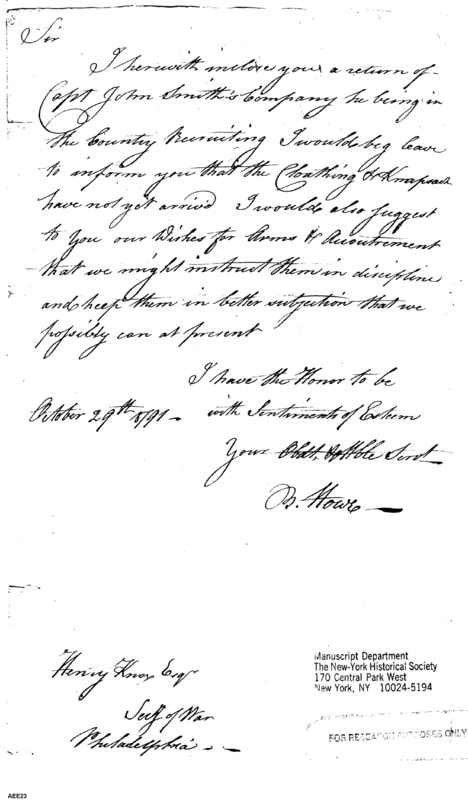 Sir
I herewith inclose you a return of
Capt John Smith's Company he being in
the Country Recruiting I would beg leave
to inform you that the Cloathing & Knapsack
have not yet arrivd I would also suggest
to You our Wishes for Arms & Acoutrement
that we might instruct them in discipline
and keep them in better subjection that we
possibly can at present
I have the Honor to be
October 29th 1791 with Sentiments of Esteem
Your Obdt. & Hble Servt
B. Howe
Henry Knox Esqr
Secy of War
Philadelphia
Manuscript Department
The New-York Historical Society
170 Central Park West
New York, NY 10024-5194
FOR RESEARCH PURPOSES ONLY
AEE23